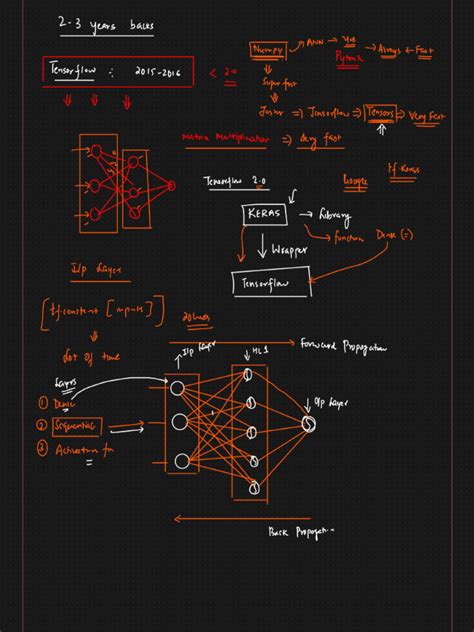 2-3 years backs
Numpy → ANN → Yes → Arrays ← Fast
Pytorch
Tensorflow : 2015-2016 < 2.0
Super fast
Faster => Tensorflow => Tensors => Very Fast
Matrix Multiplication => Very fast
Tensorflow 2.0
Google
tf.keras
KERAS → Library
function Dense (=)
Wrapper
Tensorflow
I/p Layer
[tf.constant [inputs]]
20 lines
Forward Propogation
Lot Of time
I/p Layer
HL1
O/p Layer
Layers
① Dense
② Sequential
③ Activation fn
Back Propogation